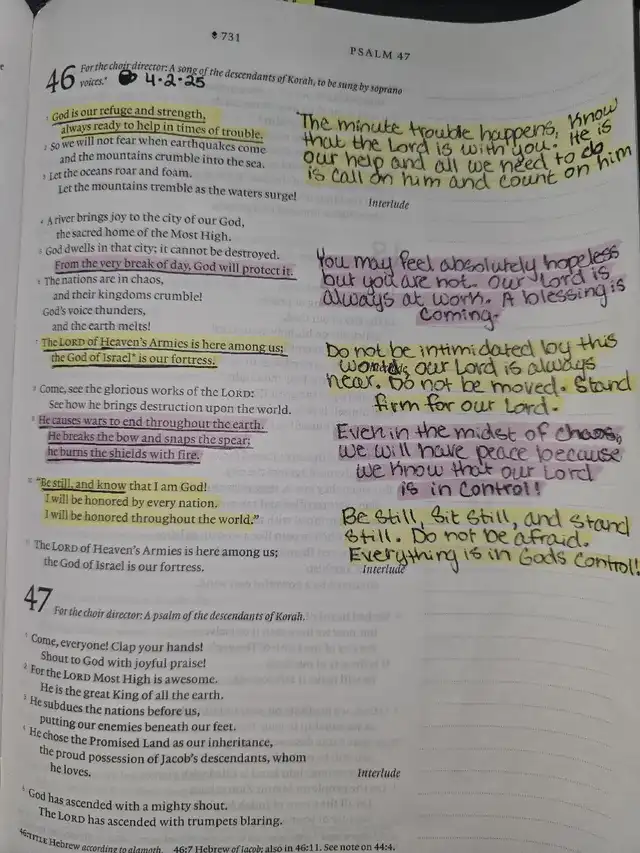 731
PSALM 47
46 For the choir director: A song of the descendants of Korah, to be sung by soprano
voices.*
4·2·25
1 God is our refuge and strength,
always ready to help in times of trouble.
2 So we will not fear when earthquakes come
and the mountains crumble into the sea.
3 Let the oceans roar and foam.
Let the mountains tremble as the waters surge!
Interlude
The minute trouble happens, know
that the Lord is with you. He is
our help and all we need to do
is call on him and count on him
4 A river brings joy to the city of our God,
the sacred home of the Most High.
5 God dwells in that city; it cannot be destroyed.
From the very break of day, God will protect it.
6 The nations are in chaos,
and their kingdoms crumble!
God's voice thunders,
and the earth melts!
You may feel absolutely hopeless
but you are not. Our Lord is
always at work. A blessing is
coming.
7 The LORD of Heaven's Armies is here among us;
the God of Israel* is our fortress.
Do not be intimidated by this
our Lord is always
near. Do not be moved. Stand
firm for our Lord.
8 Come, see the glorious works of the LORD:
See how he brings destruction upon the world.
9 He causes wars to end throughout the earth.
He breaks the bow and snaps the spear;
he burns the shields with fire.
Even in the midst of chaos,
we will have peace because
we know that our Lord
is in control!
10 "Be still, and know that I am God!
I will be honored by every nation.
I will be honored throughout the world."
Be Still, Sit Still, and Stand
Still. Do not be afraid.
Everything is in Gods control!
11 The LORD of Heaven's Armies is here among us;
the God of Israel is our fortress.
Interlude
47 For the choir director: A psalm of the descendants of Korah.
1 Come, everyone! Clap your hands!
Shout to God with joyful praise!
2 For the LORD Most High is awesome.
He is the great King of all the earth.
3 He subdues the nations before us,
putting our enemies beneath our feet.
4 He chose the Promised Land as our inheritance,
the proud possession of Jacob's descendants, whom
he loves.
Interlude
5 God has ascended with a mighty shout.
The LORD has ascended with trumpets blaring.
46:TITLE Hebrew according to alamoth. 46:7 Hebrew of Jacob; also in 46:11. See note on 44:4.